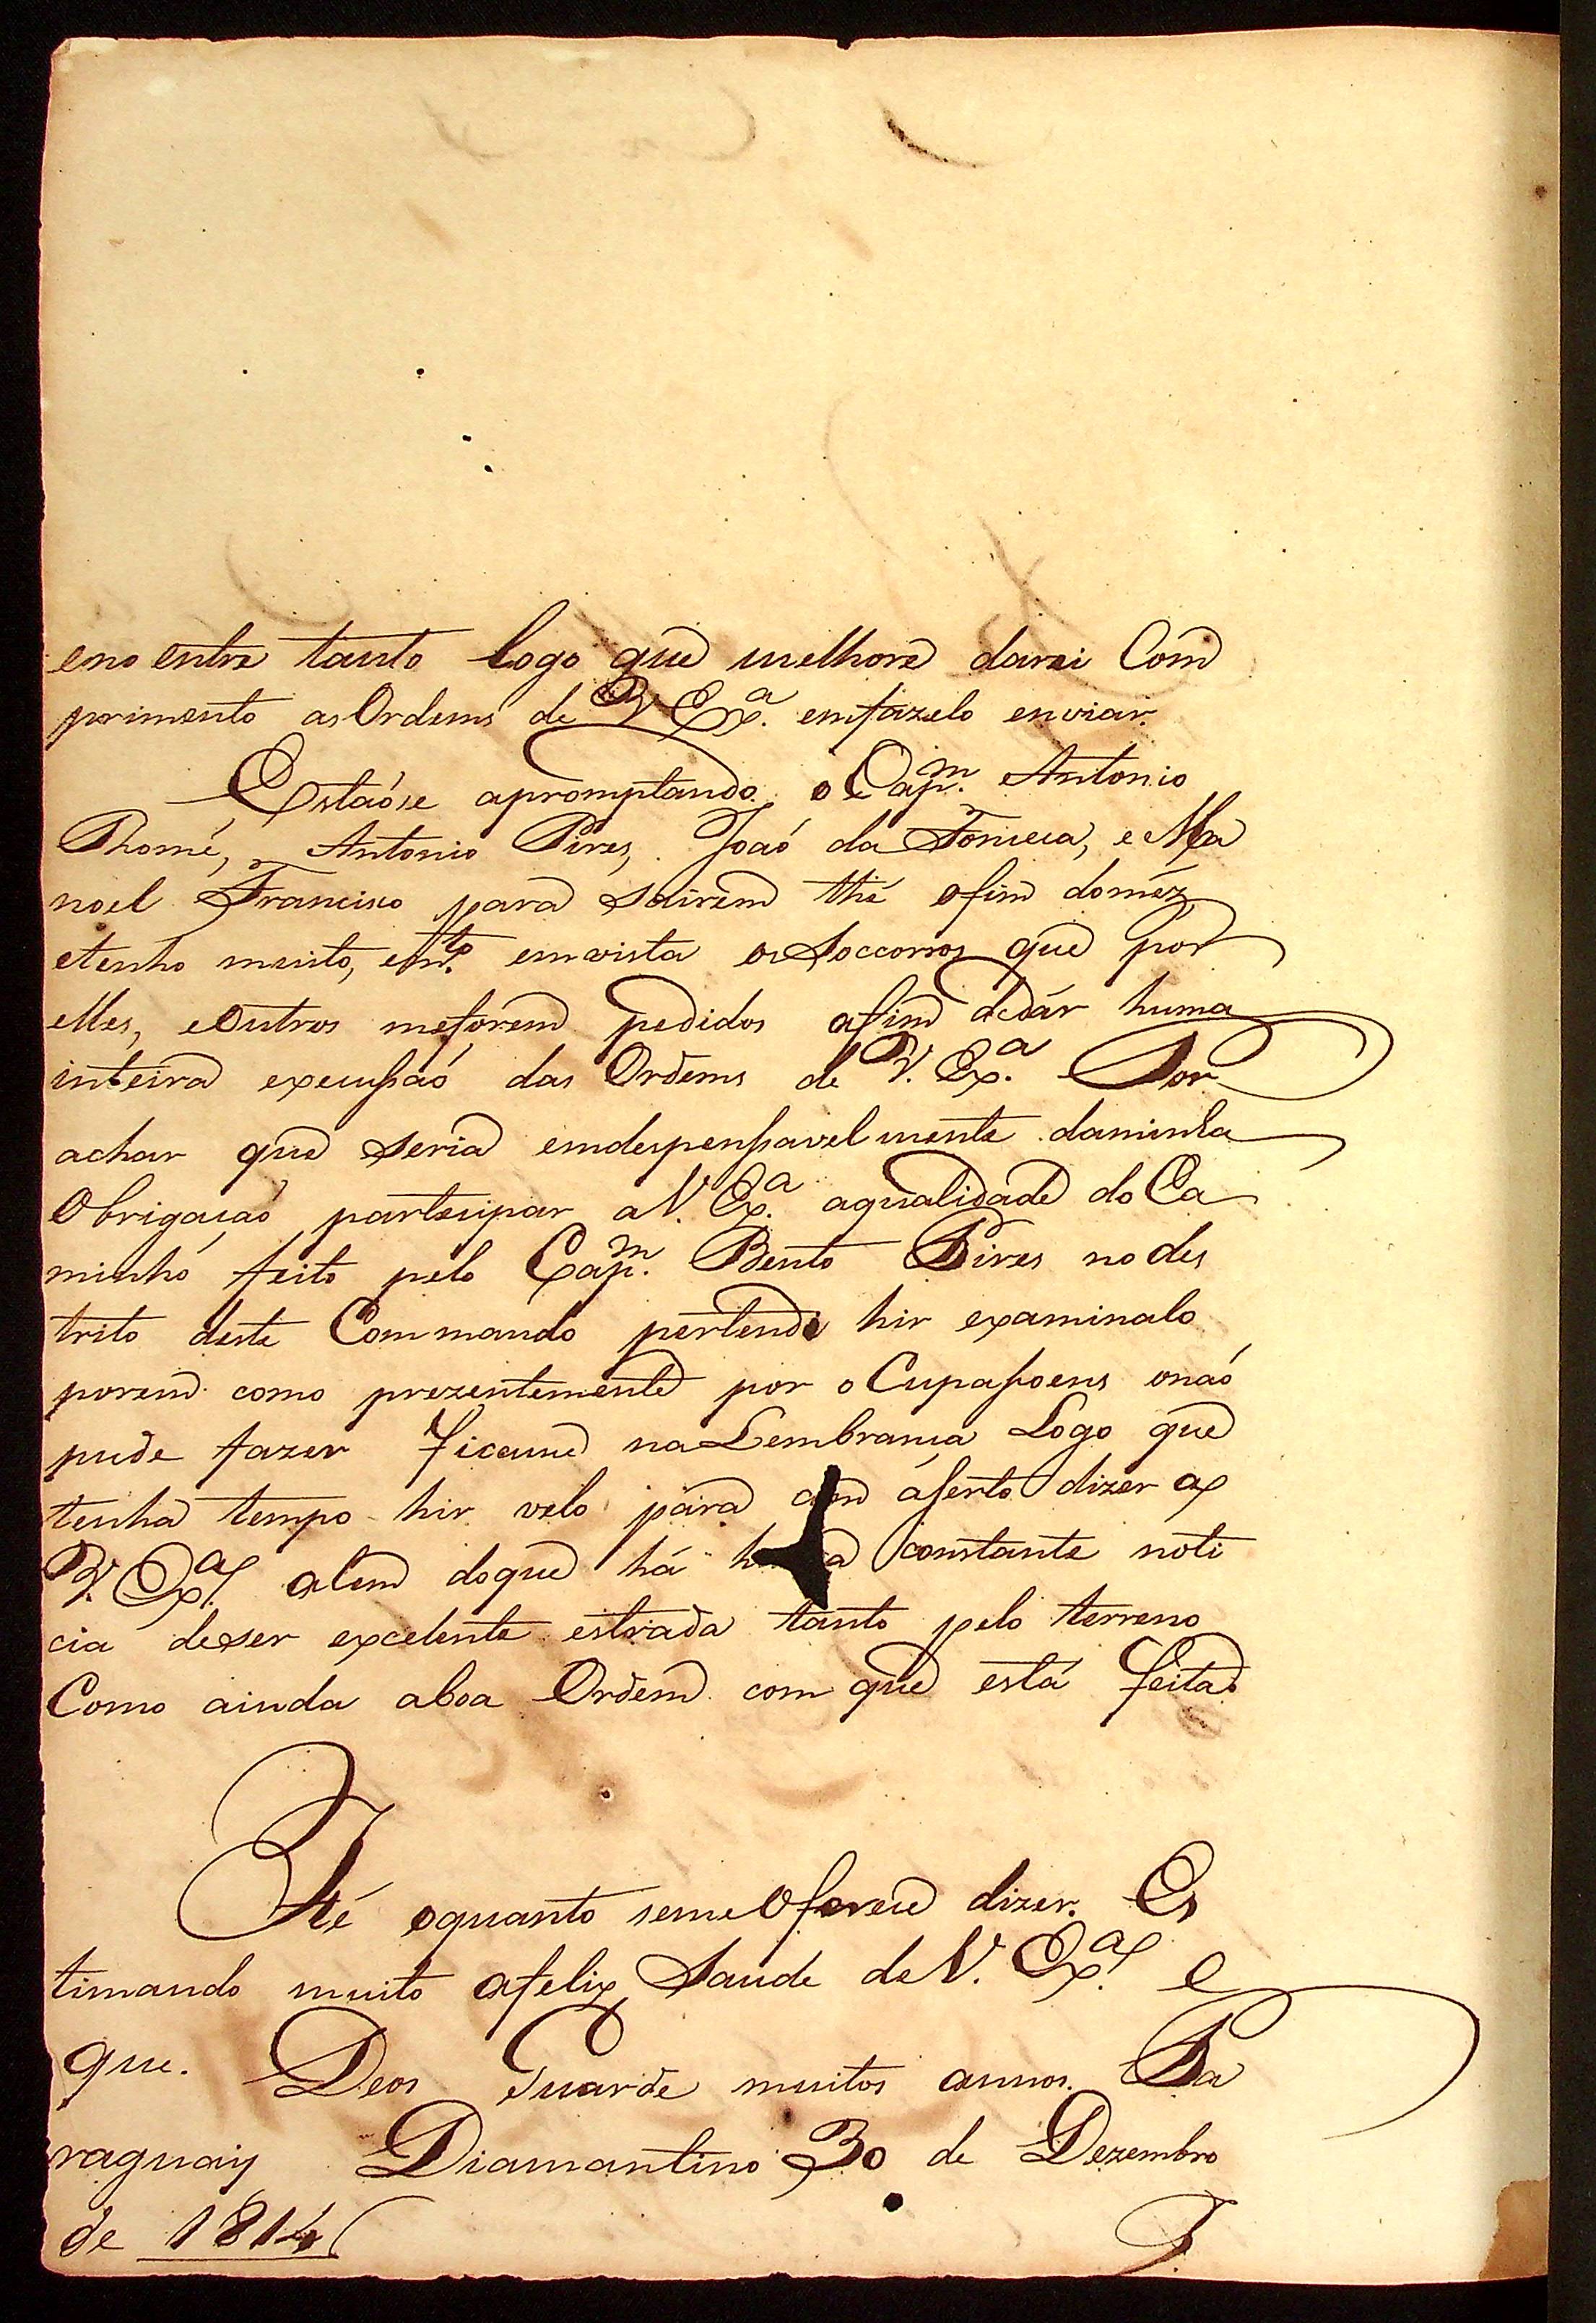 eno entre tanto logo que melhore darei Com
primento as Ordems de V. Exª. em fazelo enviar.
Estaóse apromptando o Capᵐ. Antonio
Thomé, Antonio Pires, Joaó da Fonceca, e Ma
noel Francisco para sairem thé ofim doméz
etenho muito, em ᵗᵒ emvista os Soccorros que por
elles, eOutros meforem pedidos afim dedár huma
inteira execussaó das Ordems de V. Exª. Por
achar que seria emdespenssavelmente daminha
Obrigaçaó partecipar aV. Exª. aqualidade do Ca
minho feito pelo Capᵐ. Bento Pires no des
trito deste Commando pertendi hir examinalo
porem como prezentemente por oCupassoens onaó
pude fazer ficame na Lembrança Logo que
tenha tempo hir velo para com àserto dizer a
V. Exª. alem doque há huma constante noti
cia deser excelente estrada tanto pelo terreno
Como ainda aboa Ordem com que está feita
Hé oquanto seme Oferece dizer. Es
timando muito afelix Saude de V. Exª. e
que. Deos Guarde muitos annos. Pa
raguay Diamantino 30 de Dezembro
de 1814